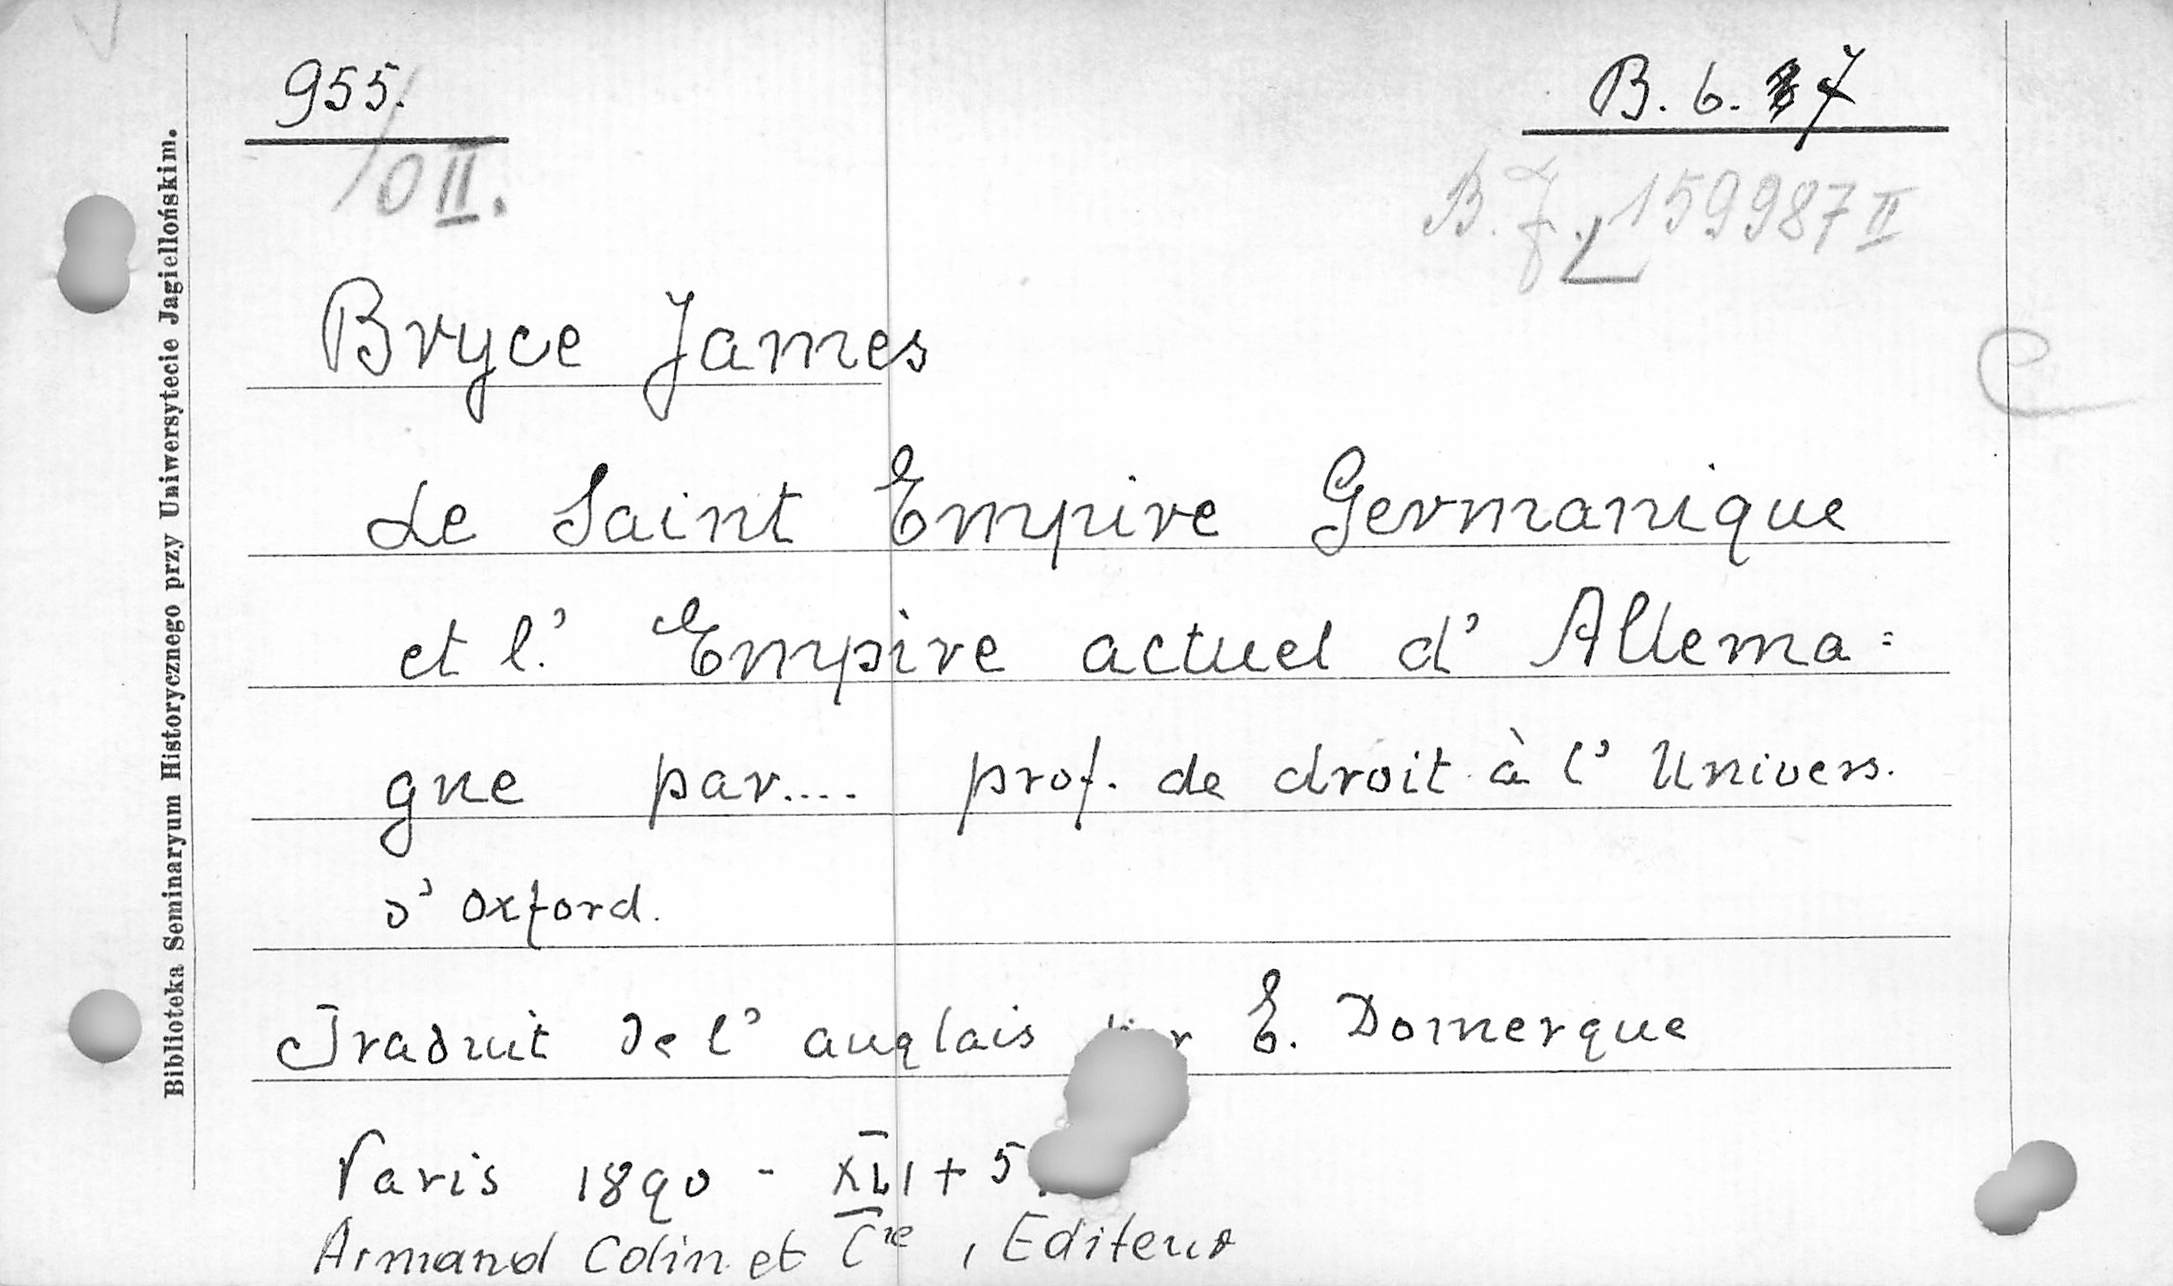 955.
B. b. 7
10 II.
B. J. 159987 II
Bryce James
Le Saint Empire Germanique
et l.' Empire actuel d' Allema=
gne par.... prof. de droit à l' Univers.
d' Oxford.
Traduit de l' anglais E. Domerque
Paris 1890 - XLI + 5
Armand Colin et Cie , Editeurs
Biblioteka Seminaryum Historycznego przy Uniwersytecie Jagiellońskim.